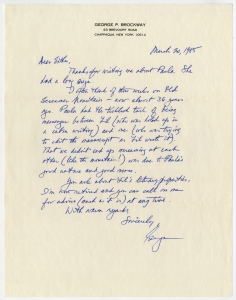 GEORGE P. BROCKWAY
63 BREVOORT ROAD
CHAPPAQUA, NEW YORK 10514
March 30, 1985
Dear
Thanks for writing me about Paula. She
had a long siege.
I often think of those weeks on Old
Mountain — now almost 36 years
ago. Paula had the ticklish task of being
messenger between Fil (who was holed up in
a cabin writing) and me (who was trying
to edit the manuscript as Fil wrote it).
That we didn't end up sneering at each
other (like the mountain!) was due to Paula's
good nature and good sense.
You ask about Fil's literary properties.
I'm now retired and you can call on me
for advice (such as it is) at any time.
With warm regards
Sincerely,
George